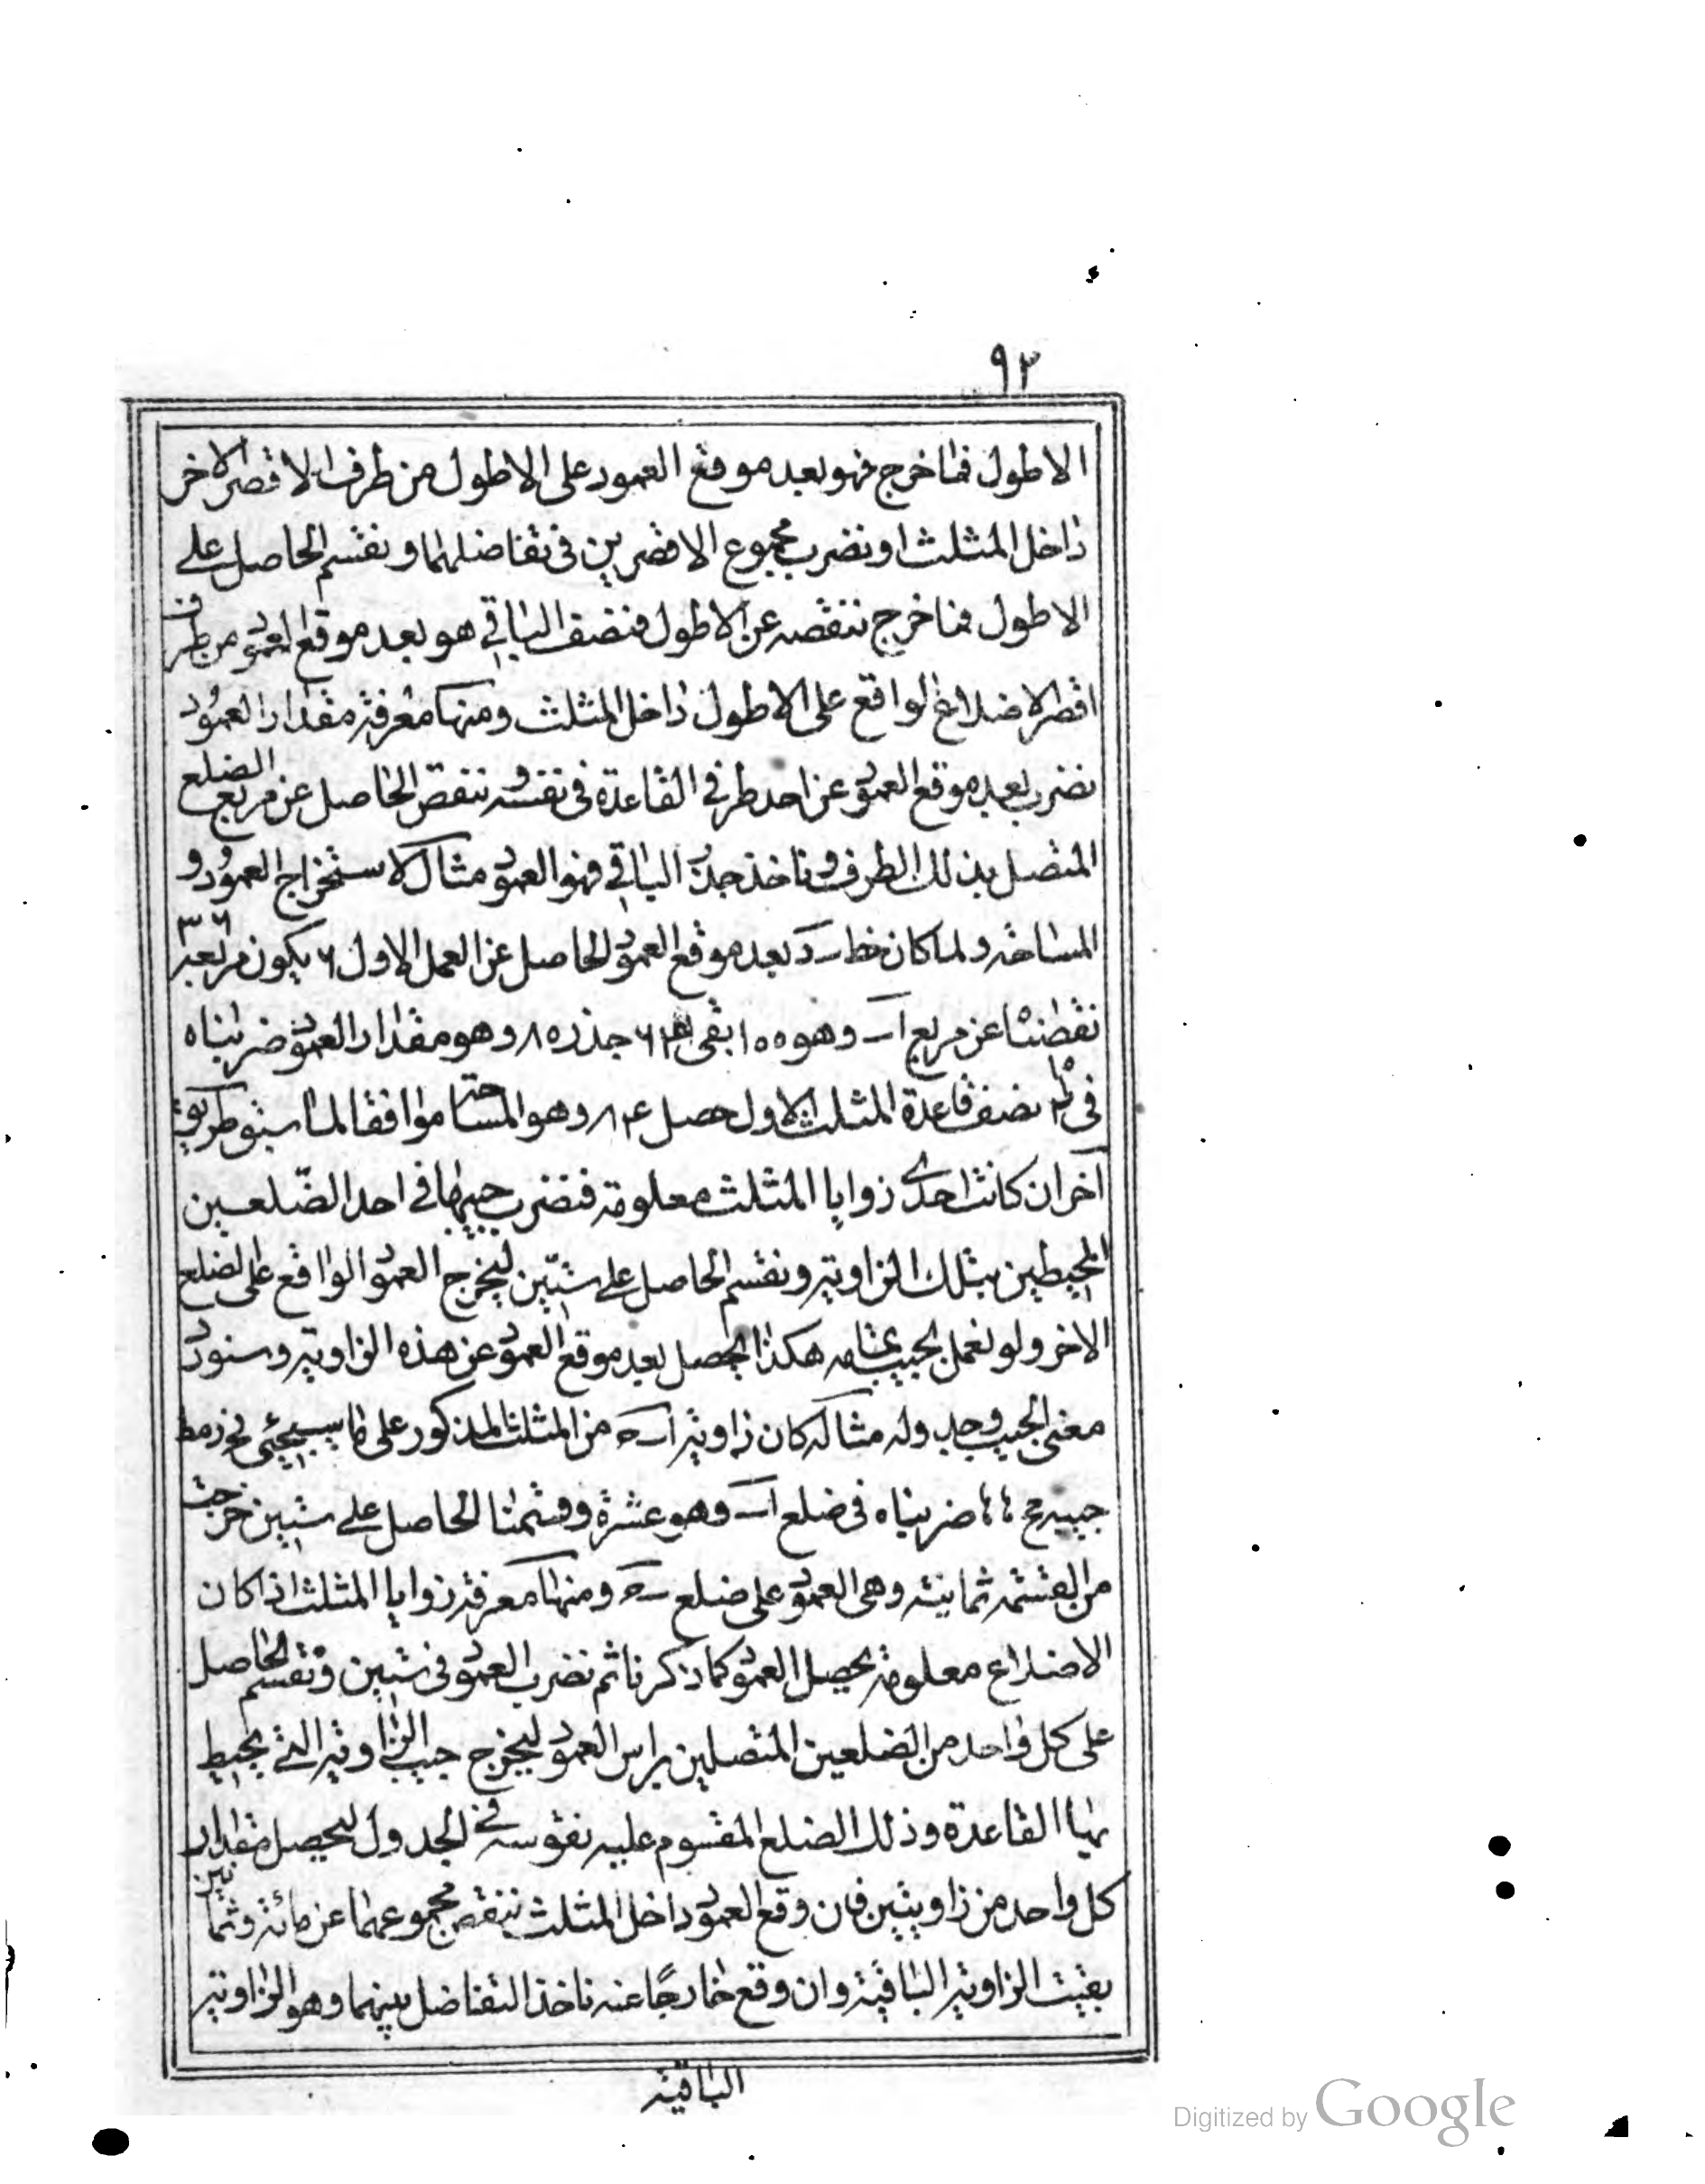 ٩٢
الاطول فما خرج فهو بعد موقع العمود على الاطول من طرف الاقصر الاخر
داخل المثلث او نضرب مجموع الاقصرين فى تفاضلهما و نقسم الحاصل على
الاطول فما خرج ننقصه عن الاطول فنصف الباقي هو بعد موقع العمود من طرف
اقصر الاضلاع الواقع على الاطول داخل المثلث ومنها معرفة مقدار العمود
نضرب بعد موقع العمود عن احد طرفي القاعدة فى نفسه و ننقص الحاصل عن مربع الضلع
المتصل بذلك الطرف و ناخذ جذر الباقي فهو العمود مثاله لاستخراج العمود و
المساحة ولما كان خط ب د بعد موقع العمود الحاصل عن العمل الاول ٦ يكون مربعه ٣٦
نقصناه عن مربع اب وهو ١٠٠ بقى ٦٤ جذره ٨ وهو مقدار العمود ضربناه
فى نصف قاعدة المثلث الاول حصل ٨٤ وهو المساحة موافقا لما سبق طريق
آخر ان كانت احدى زوايا المثلث معلومة فنضرب جيبها في احد الضلعين
المحيطين بتلك الزاوية ونقسم الحاصل على ستين ليخرج العمود الواقع على الضلع
الاخر ولو نعمل بجيب تمامه هكذا ليحصل بعد موقع العمود عن هذه الزاوية وسنورد
معنى الجيب وجدوله مثاله كان زاوية اب ح من المثلث المذكور على ما سيجئ نح ز مط
جيبه مح ضربناه فى ضلع اب وهو عشرة وقسمنا الحاصل على ستين خرجت
من القسمة ثمانية وهى العمود على ضلع ب ح ومنها معرفة زوايا المثلث اذا كان
الاضلاع معلومة يحصل العمود كما ذكرنا ثم نضرب العمود فى ستين ونقسم الحاصل
على كل واحد من الضلعين المتصلين براس العمود ليخرج جيب الزاوية التي يحيط
بها القاعدة وذلك الضلع المقسوم عليه نقوسه في الجدول ليحصل مقدار
كل واحد من زاويتين فان وقع العمود داخل المثلث ننقص مجموعهما عن مائة وثمانين
بقيت الزاوية الباقية وان وقع خارجًا عنه ناخذ التفاضل بينهما وهو الزاوية
الباقية
Digitized by Google